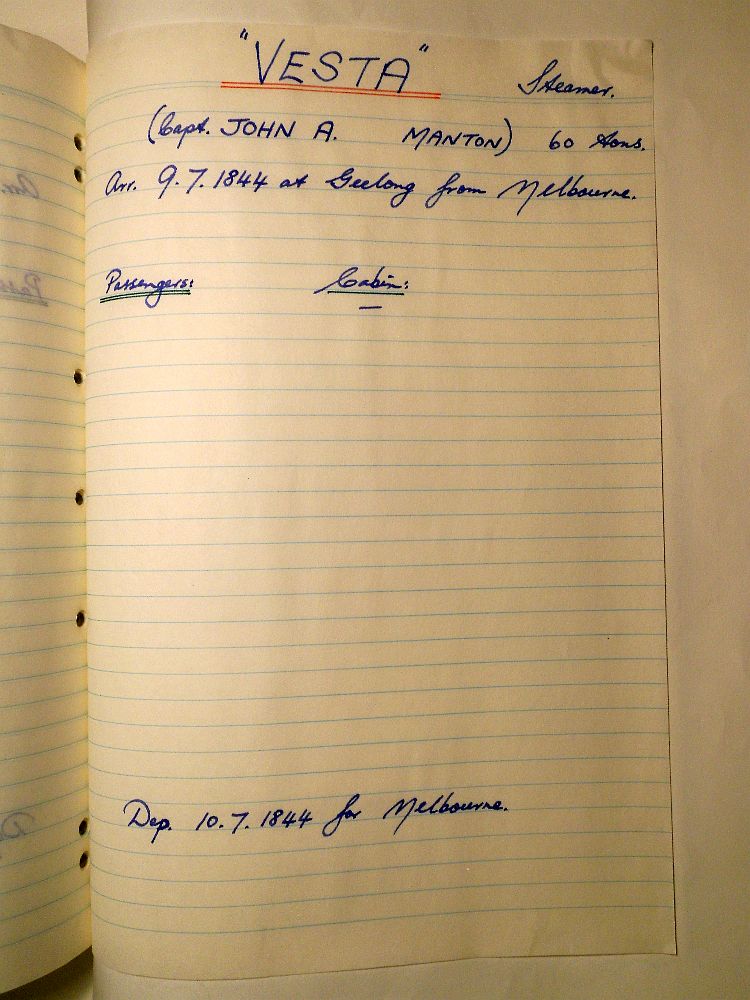 "VESTA" Steamer.
(Capt. JOHN A. MANTON) 60 tons.
Arr. 9.7.1844 at Geelong from Melbourne.
Passengers: Cabin:
—
Dep. 10.7.1844 for Melbourne.